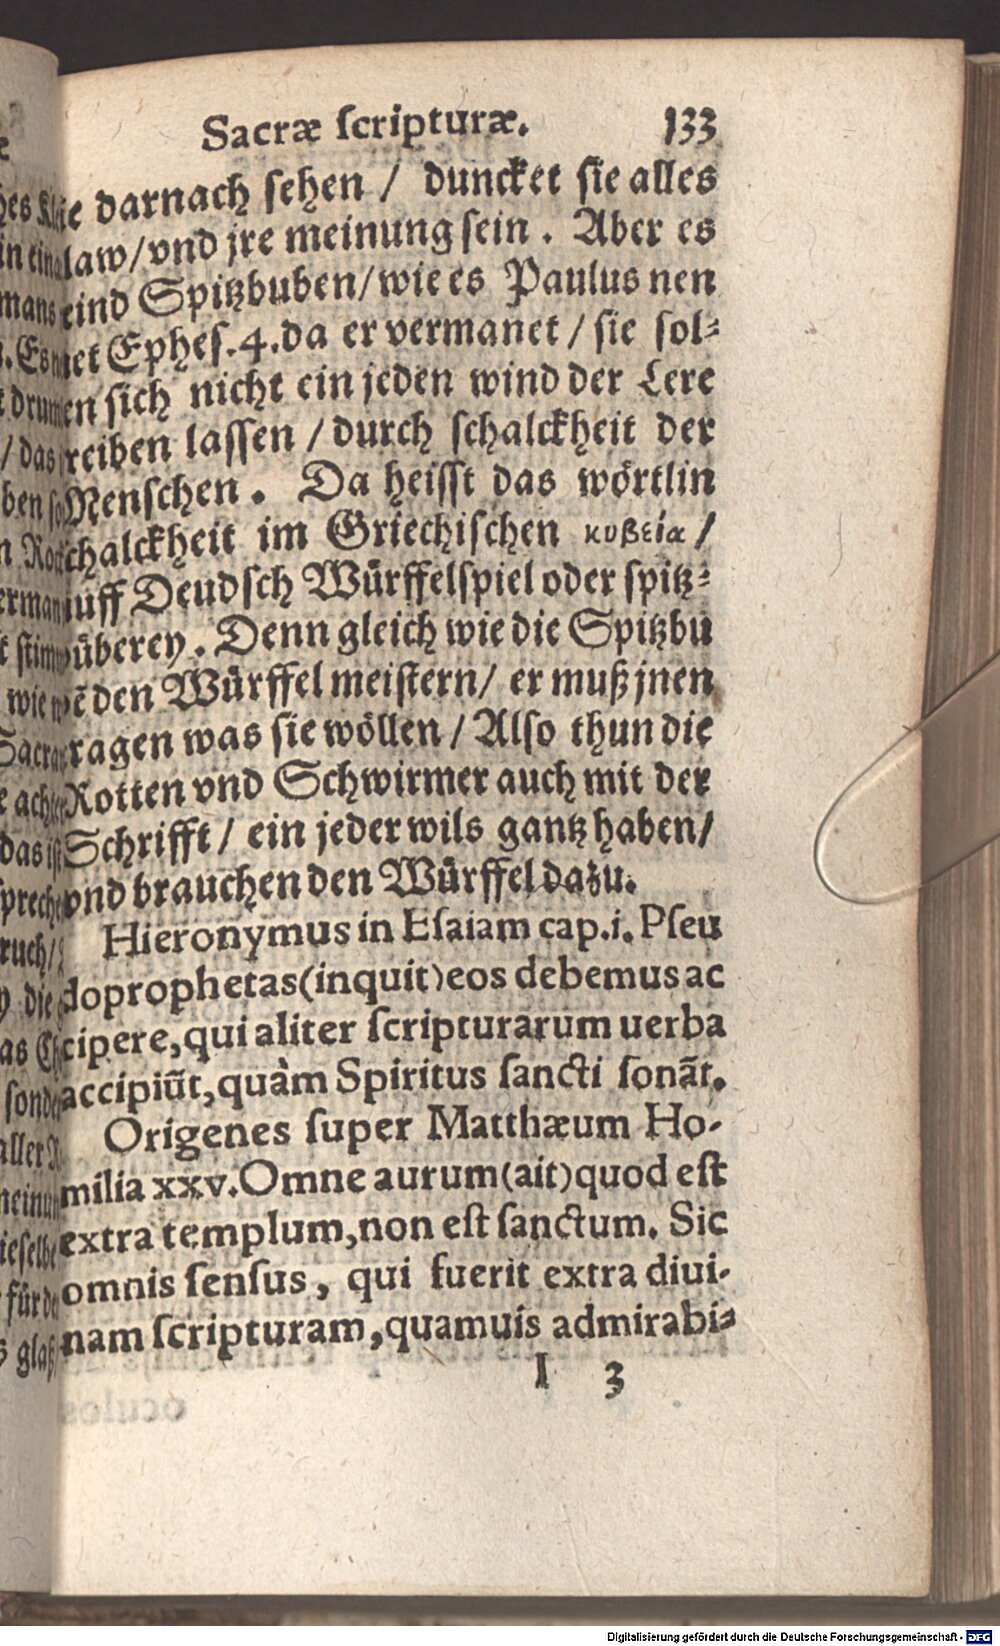 Sacræ ſcripturæ. 133
ie darnach ſehen / duncket ſie alles
law/vnd jre meinung ſein . Aber es
eind Spitzbuben/wie es Paulus nen
net Epheſ.4.da er vermanet / ſie ſol⸗
en ſich nicht ein jeden wind der Lere
reiben laſſen / durch ſchalckheit der
Menſchen . Da heiſſt das wörtlin
chalckheit im Griechiſchen κυβεία /
uff Deudſch Würffelſpiel oder ſpitz⸗
überey . Denn gleich wie die Spitzbu
ē den Würffel meiſtern/ er muß jnen
ragen was ſie wöllen / Alſo thun die
Rotten vnd Schwirmer auch mit der
Schrifft / ein jeder wils gantz haben/
vnd brauchen den Würffel dazu.
Hieronymus in Eſaiam cap.i. Pſeu
doprophetas(inquit)eos debemus ac
cipere,qui aliter ſcripturarum uerba
accipiūt,quàm Spiritus ſancti ſonāt.
Origenes ſuper Matthæum Ho-
milia xxv.Omne aurum(ait)quod eſt
extra templum,non eſt ſanctum. Sic
omnis ſenſus, qui fuerit extra diui-
nam ſcripturam,quamuis admirabi⸗
I 3
Digitalisierung gefördert durch die Deutsche Forschungsgemeinschaft - DFG